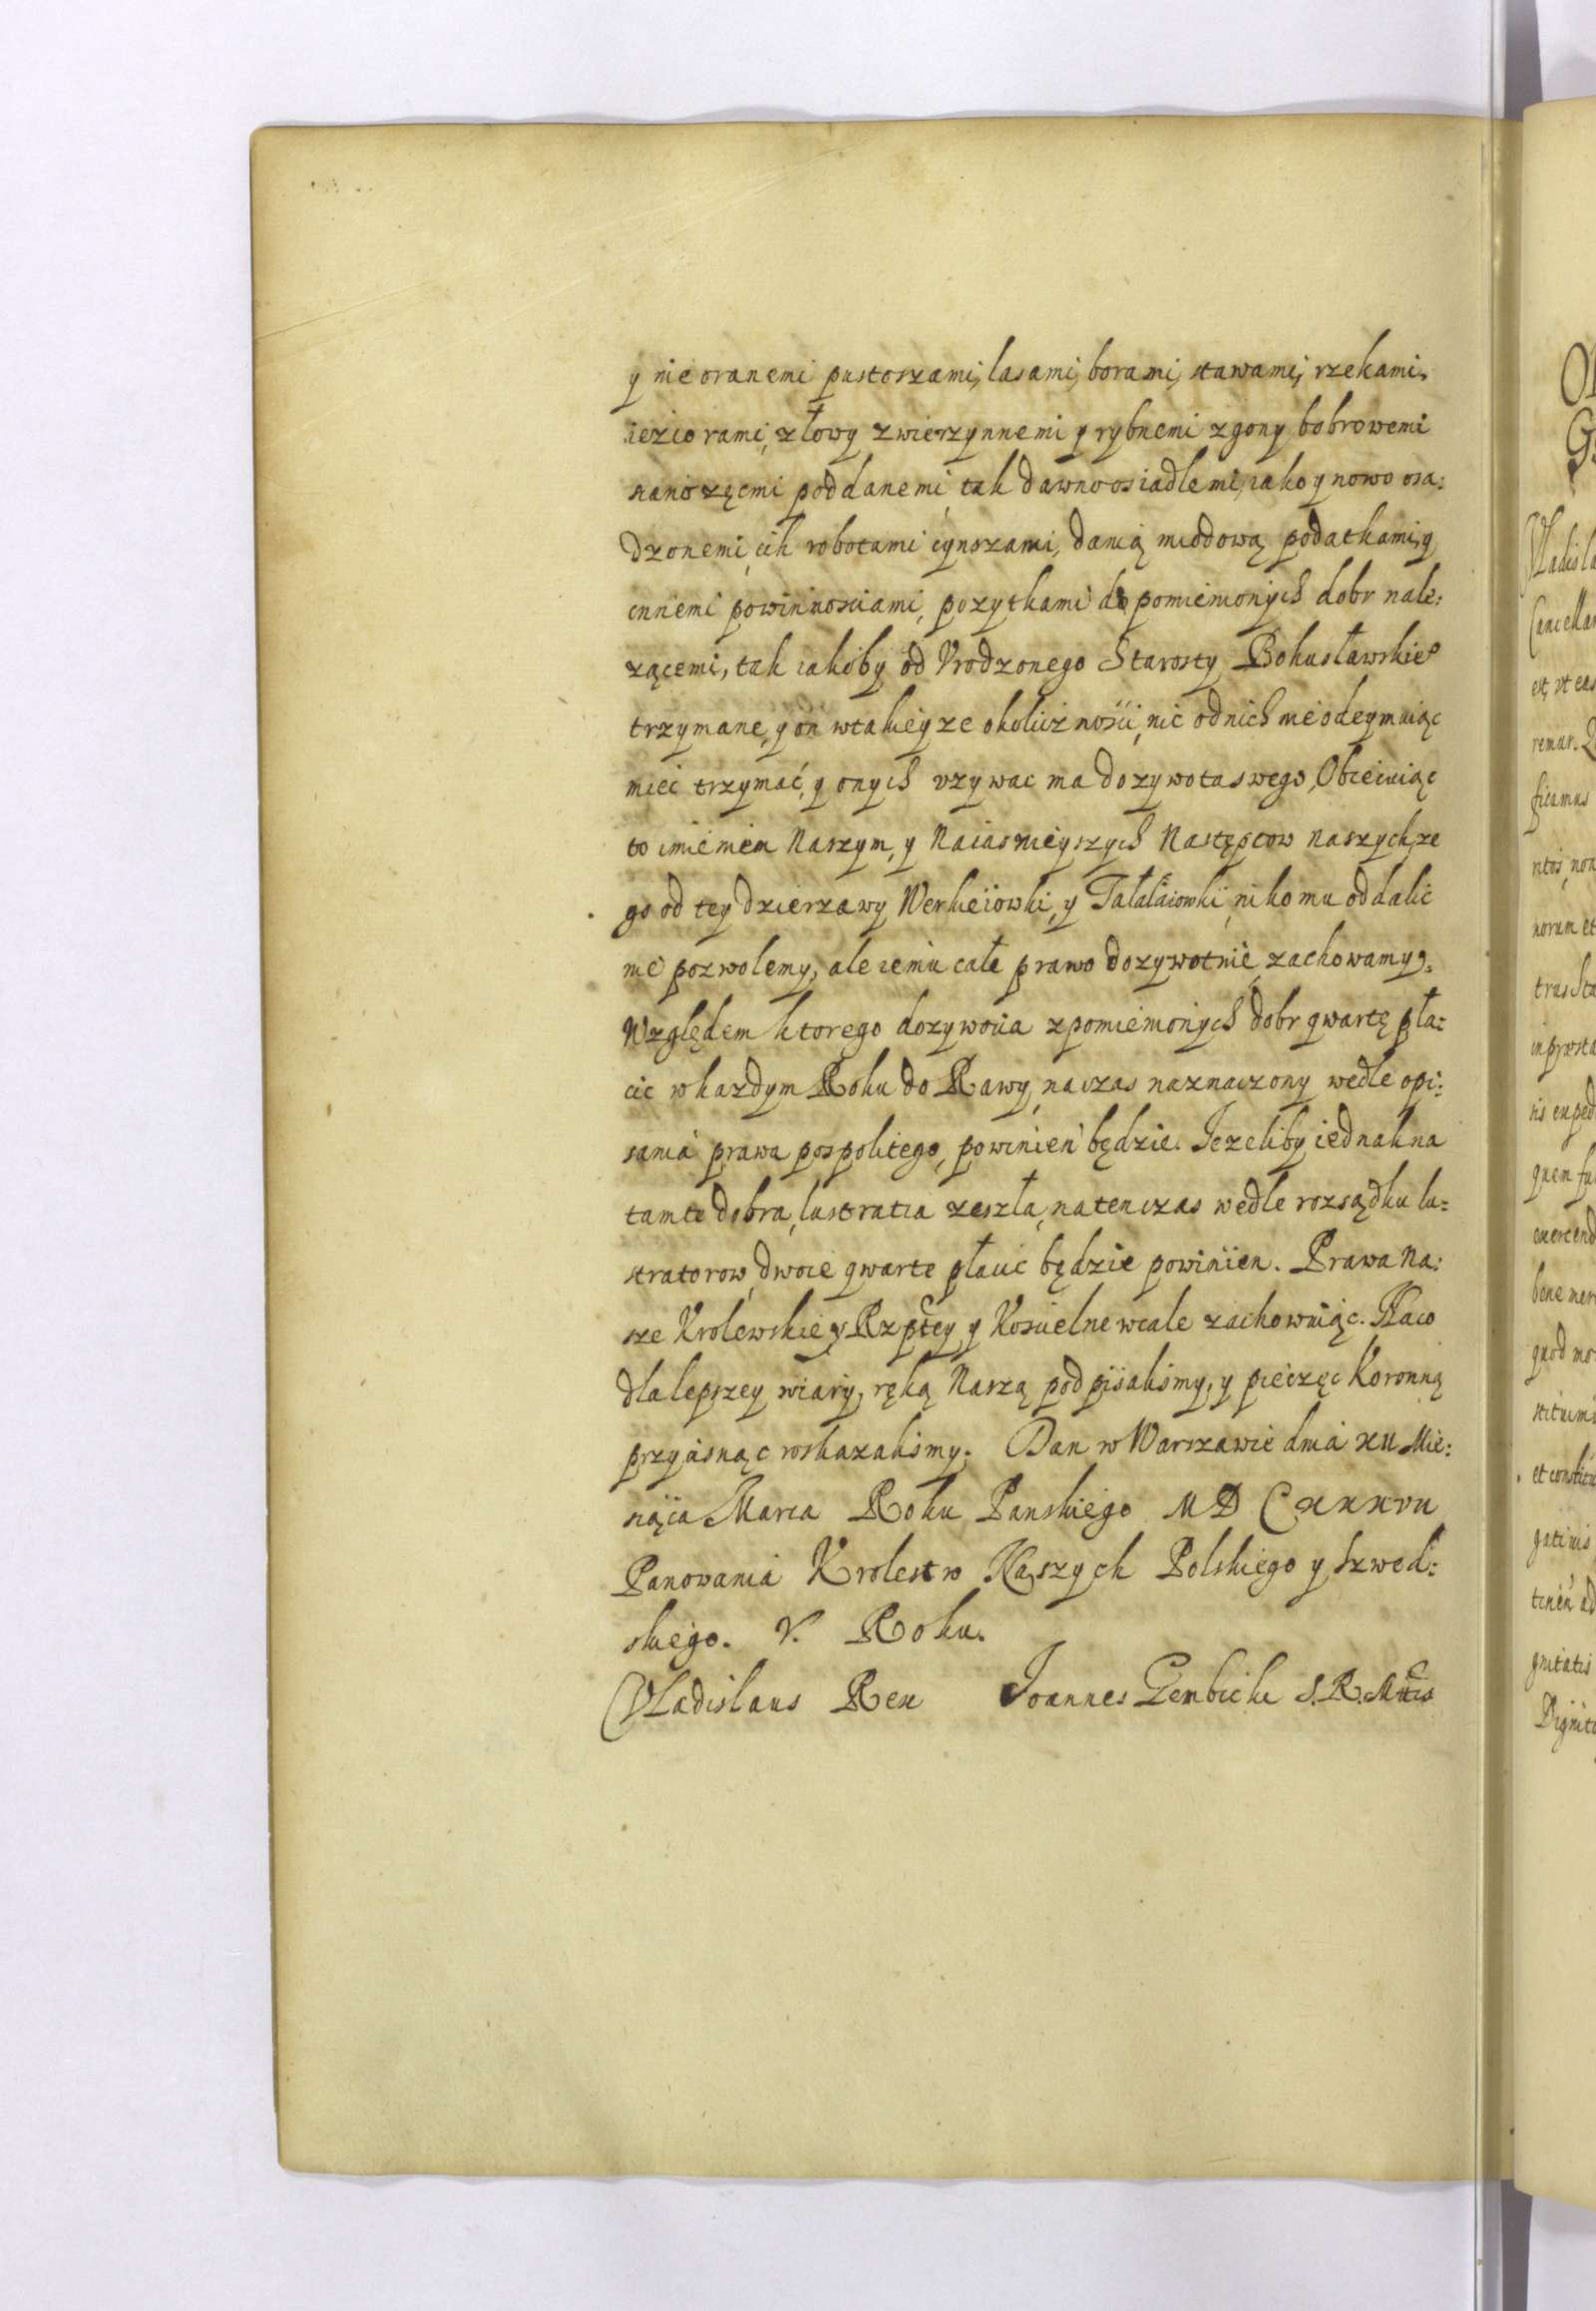 y nie oranemi pustoszami, lasami, borami, stawami, rzekami,
ieziorami, złowy zwierzynnemi y rybnemi zgony bobrowemi
sianozęcmi poddanemi, tak dawno osiadłemi, iako y nowo osa:
dzonemi, ich robotami cynszami, danią miodową podatkami, y
innemi powinnosciami, pozytkami do pomienionych dobr nale:
zącemi, tak iakoby od Vrodzonego Starosty Bohusławskieo
trzymane, y on wtakieyze okolicznosci, nic odnich nieodeymuiąc
miec trzymać, y onych vzywac ma dozywota swego, Obiecuiąc
to imieniem Naszym, y Naiasnieyszych Następcow naszych, ze
go od tey dzierzawy Werkeiowki, y Tałałaiowki, nikomu oddalic
nie pozwolemy, ale iemu całe prawo dozywotnie zachowamy,
Względem ktorego dozywocia zpomienionych dobr qwartę pła:
cic w kazdym Roku do Rawy, naczas naznaczony wedle opi:
sania prawa pospolitego, powinien będzie. Iezeliby iednak na
tamte dobra, lustratia zeszła, natenczas wedle rozsądku lu:
stratorow, dwoie qwarte płacic będzie powinien. Prawa Na:
sze Krolewskie, Rzptey y Koscielne wcale zachowuiąc. Naco
dla lepszey wiary, ręką Naszą podpisalismy, y pieczęc Koronną
przycisnąc roskazalismy. Dan w Warszawie dnia XII Mie:
siąca Marca Roku Panskiego MDCXXXVII
Panowania Krolestw Naszych Polskiego y Szwed:
skiego. V. Roku.
Vladislaus Rex Ioannes Gembicki S.R.Mttis